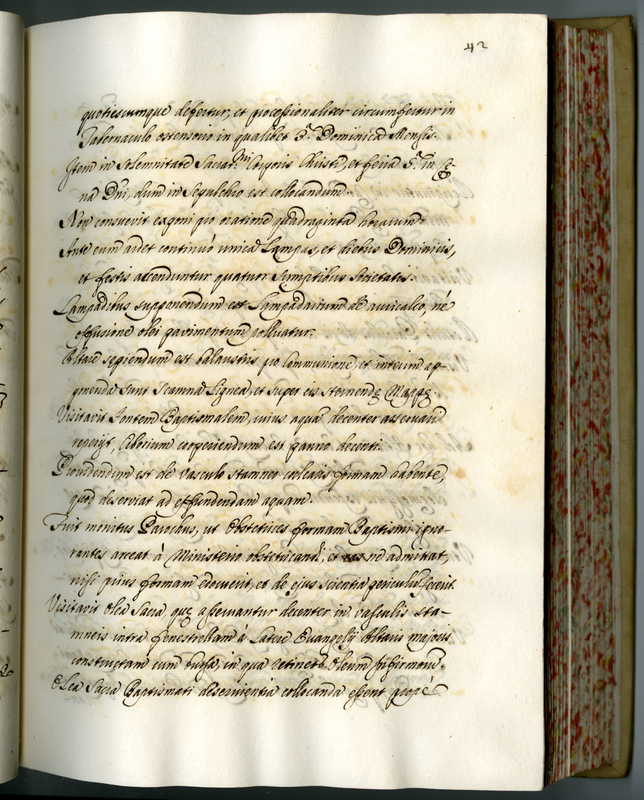 42
quotiescumque defertur, et processionaliter circumfertur in
Tabernaculo ostensorio in qualibet 3.ª Dominica Mensis.
Item in solemnitate Sanct.mi Corporis Christi, et feria 5.ª in Cę
na Dñi, dum in Sepulchro est collocandum.
Non consuevit exponi pro oratione quadraginta horarum.
Ante eum ardet continuò unica Lampas, et diebus Dominicis,
et festis accenduntur quatuor sumptibus Societatis.
Lampadibus supponendum est Lampadarium de auricalco, nè
effusione olei pavimentum polluatur.
Altare sepiendum est balaustris pro Communione, et interim ap-
ponenda sunt scamna lignea, et super eis sternendę Mappę.
Visitavit Fontem Baptismalem, cuius aqua decenter asservari
reperijt, Ciborium cooperiendum est panno decenti.
Providendum est de vasculo stamneo coclearis formam habente,
quod deserviat ad effundendam aquam.
Fuit monitus Parochus, ut Obstetrices formam Baptismi igno-
rantes arceat à Ministerio obstetricandi, et nè admittat,
nisi prius formam edocuerit, et de ejus scientia periculum fecerit.
Visitavit Olea Sacra, quę asservantur decenter in vasculis sta-
mneis intra fenestrellam à Latere Evangelij Altaris majoris
constructam cum bursa, in qua retinetur Oleum Infirmorum.
Olea Sacra Baptismati deservientia collocanda essent propè